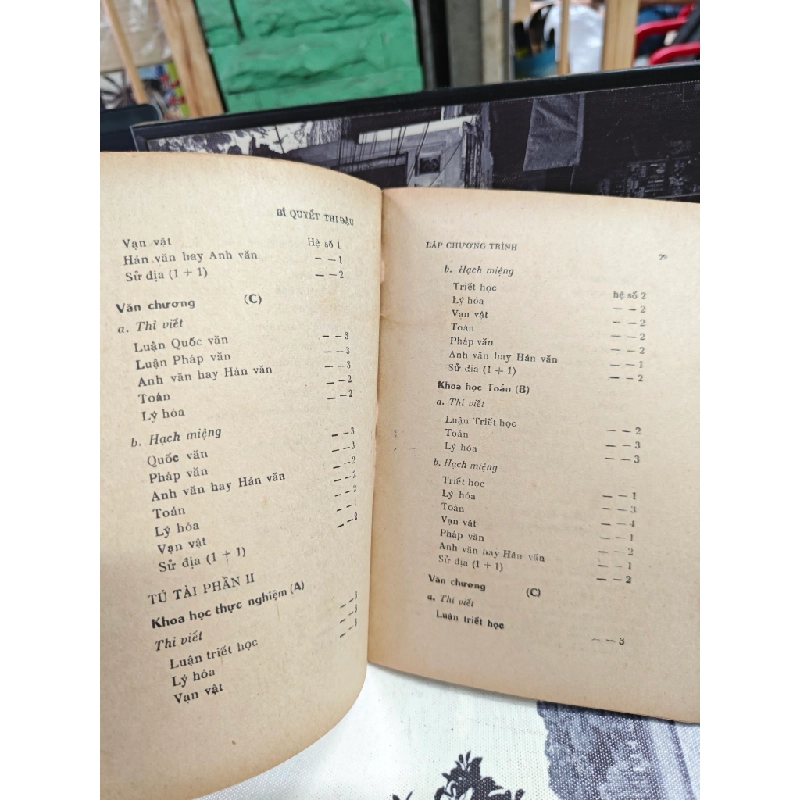 BÍ QUYẾT THI ĐẬU
Vạn vật Hệ số 1
Hán văn hay Anh văn — — 1
Sử địa (1 + 1) — — 2
Văn chương (C)
a. Thi viết
Luận Quốc văn — — 3
Luận Pháp văn — — 3
Anh văn hay Hán văn — — 3
Toán — — 2
Lý hóa — — 2
b. Hạch miệng
Quốc văn — — 3
Pháp văn — — 3
Anh văn hay Hán văn — — 2
Toán
Lý hóa
Vạn vật
Sử địa (1 + 1)
TÚ TÀI PHẦN II
Khoa học thực nghiệm (A)
Thi viết
Luận triết học
Lý hóa
Vạn vật
LẬP CHƯƠNG TRÌNH
b. Hạch miệng
Triết học hệ số 2
Lý hóa — — 2
Vạn vật — — 2
Toán — — 2
Pháp văn — — 2
Anh văn hay Hán văn — — 1
Sử địa (1 + 1) — — 2
Khoa học Toán (B)
a. Thi viết
Luận Triết học — — 2
Toán — — 3
Lý hóa — — 3
b. Hạch miệng
Triết học — — 1
Lý hóa — — 3
Toán — — 4
Vạn vật — — 1
Pháp văn — — 2
Anh văn hay Hán văn — — 1
Sử địa (1 + 1) — — 2
Văn chương (C)
a. Thi viết
Luận triết học — — 3